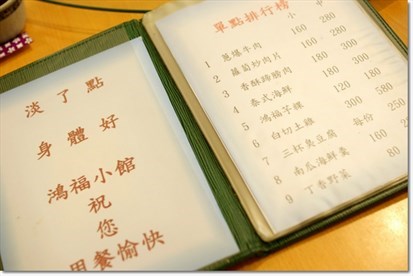 淡了點
身體好
鴻福小館
祝
您
用餐愉快
單點排行榜
小 中
1 蔥爆牛肉 160 280
2 蘿蔔炒肉片 160 280
3 香酥蹄膀肉 180 300
4 泰式海鮮 120 180
5 鴻福芋粿 120 180
6 白切土雞 300 580
7 三杯臭豆腐 每份 250
8 南瓜海鮮羹 160
9 丁香野菜